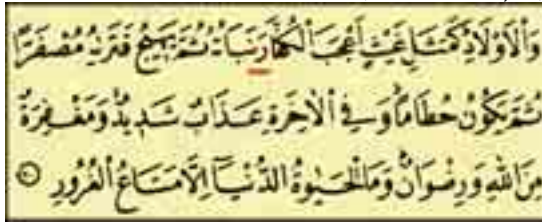 وَالْاَوْلَادِ كَمَثَلِ غَيْثٍ اَعْجَبَ الْكُفَّارَ نَبَاتُهُ ثُمَّ يَهِيجُ فَتَرٰيهُ مُصْفَرًّا
ثُمَّ يَكُونُ حُطَامًا وَفِي الْاٰخِرَةِ عَذَابٌ شَدِيدٌ وَمَغْفِرَةٌ
مِنَ اللّٰهِ وَرِضْوَانٌ وَمَا الْحَيٰوةُ الدُّنْيَٓا اِلَّا مَتَاعُ الْغُرُورِ ٢٠